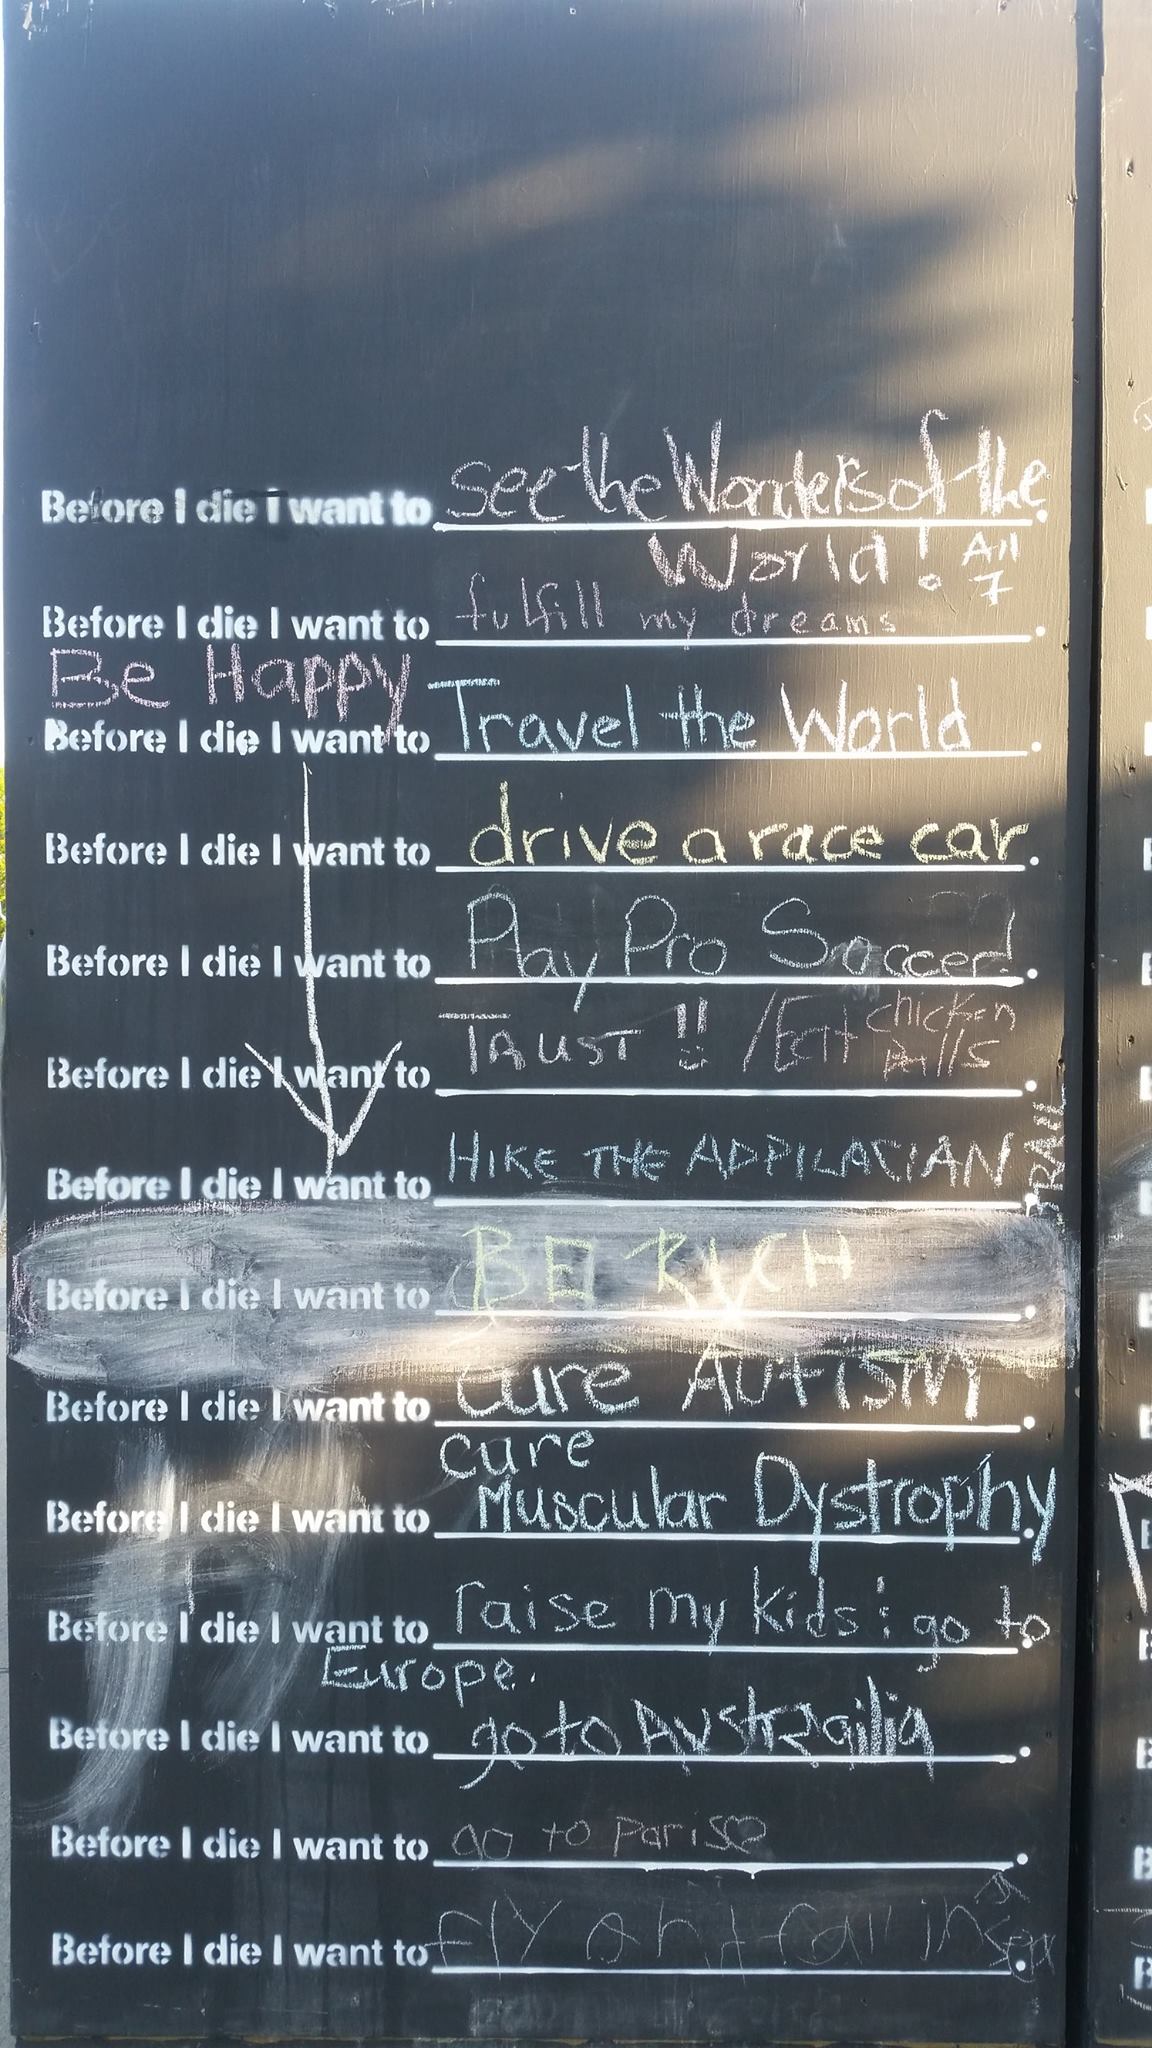 Before I die I want to see the Wonders of the.
World! All
7
Before I die I want to fulfill my dreams.
Be Happy
Before I die I want to Travel the World.
Before I die I want to drive a race car.
Before I die I want to Play Pro Soccer.
Before I die I want to TRUST !! /EAt chicken balls.
Before I die I want to HIKE THE APPILACIAN TRAIL.
Before I die I want to BE RICH.
Before I die I want to cure AUTiSM.
cure
Before I die I want to Muscular Dystrophy.
Before I die I want to raise my kids : go to.
Europe.
Before I die I want to go to.
Before I die I want to go to parise.
Before I die I want to fly and fall in.